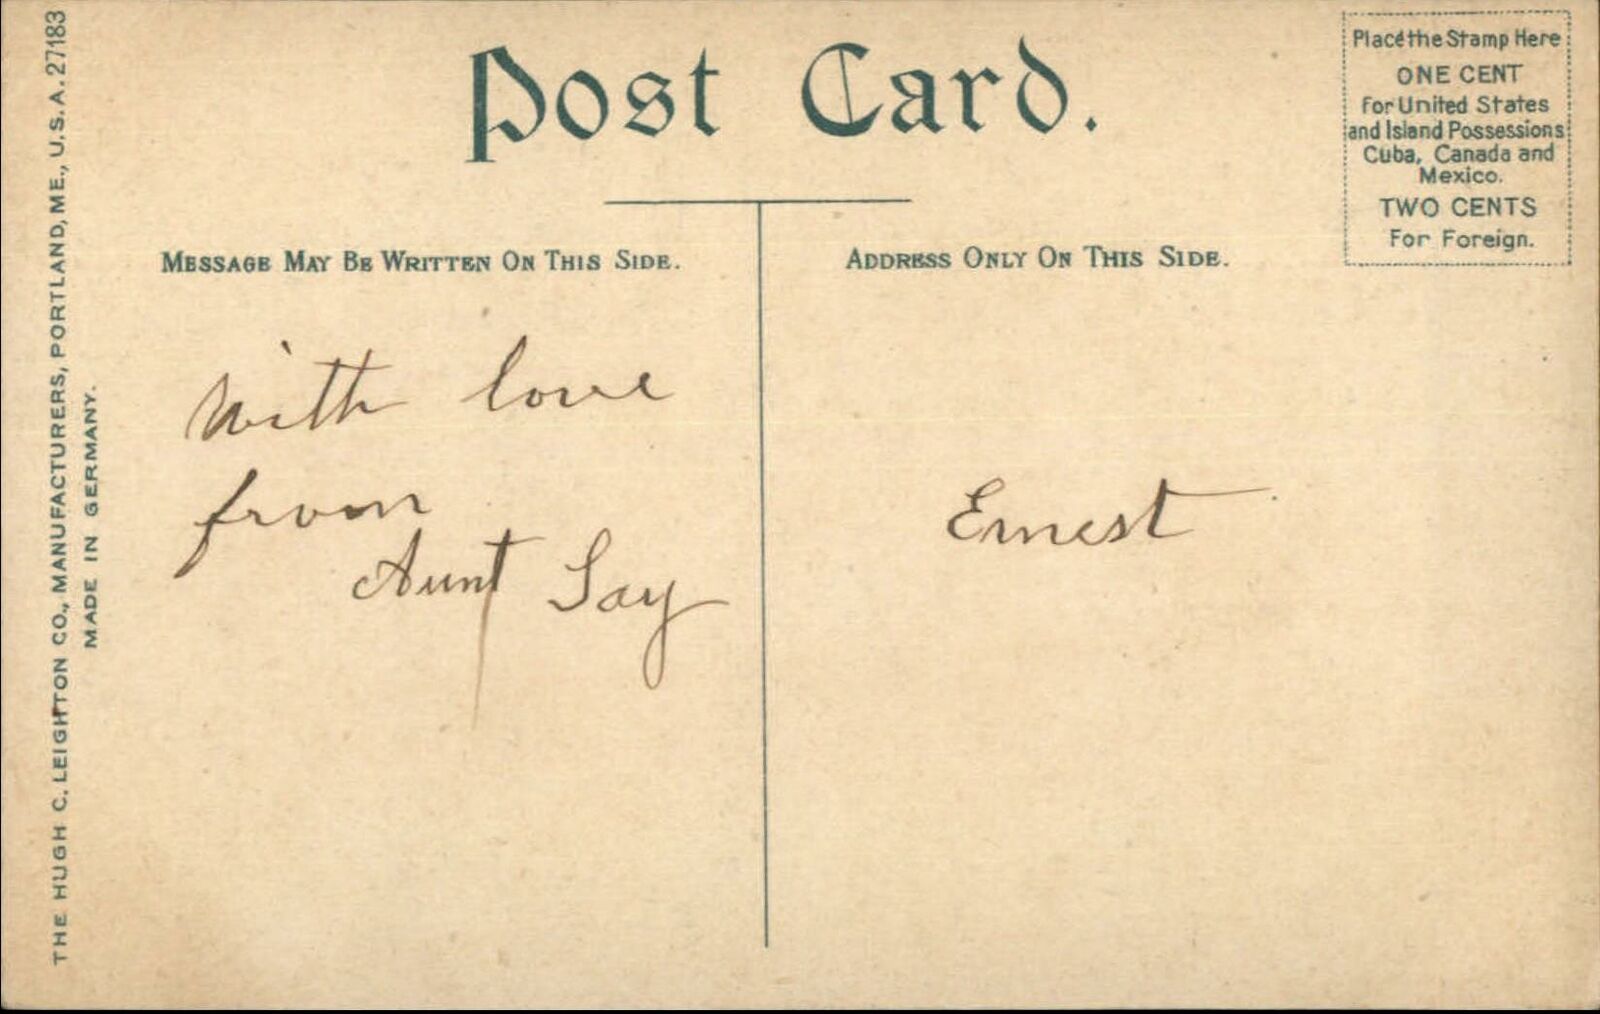 Post Card.
Place the Stamp Here
ONE CENT
For United States
and Island Possessions
Cuba, Canada and
Mexico.
TWO CENTS
For Foreign.
MESSAGE MAY BE WRITTEN ON THIS SIDE.
ADDRESS ONLY ON THIS SIDE.
With love
from
Aunt Say
Ernest
THE HUGH C. LEIGHTON CO., MANUFACTURERS, PORTLAND, ME., U.S.A. 27183
MADE IN GERMANY.